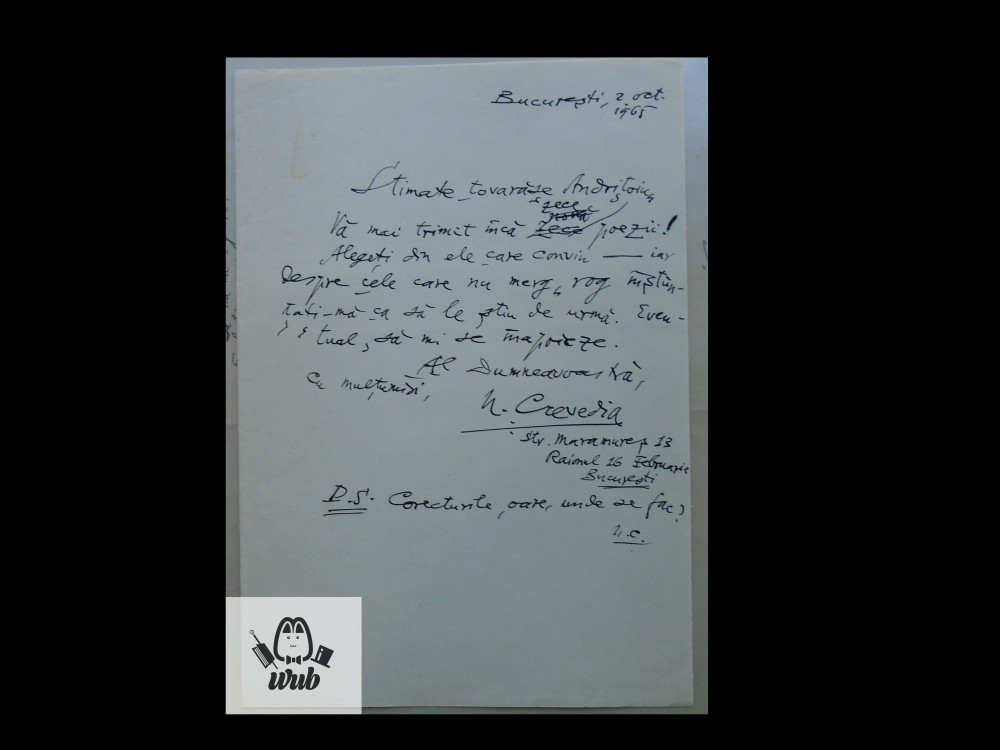 București, 2 oct.
1965
Stimate tovarășe Andrițoiu,
zece
nouă
Vă mai trimit încă zece poezii!
Alegeți din ele care convin — iar
despre cele care nu merg, rog înștiin-
țați-mă ca să le știu de urmă. Even-
tual, să mi se înapoieze.
Al Dumneavoastră,
Cu mulțumiri,
N. Crevedia
Str. Maramureș 13
Raionul 16 Februarie
București
D.S. Corecturile, oare, unde se fac?
N.C.
wub